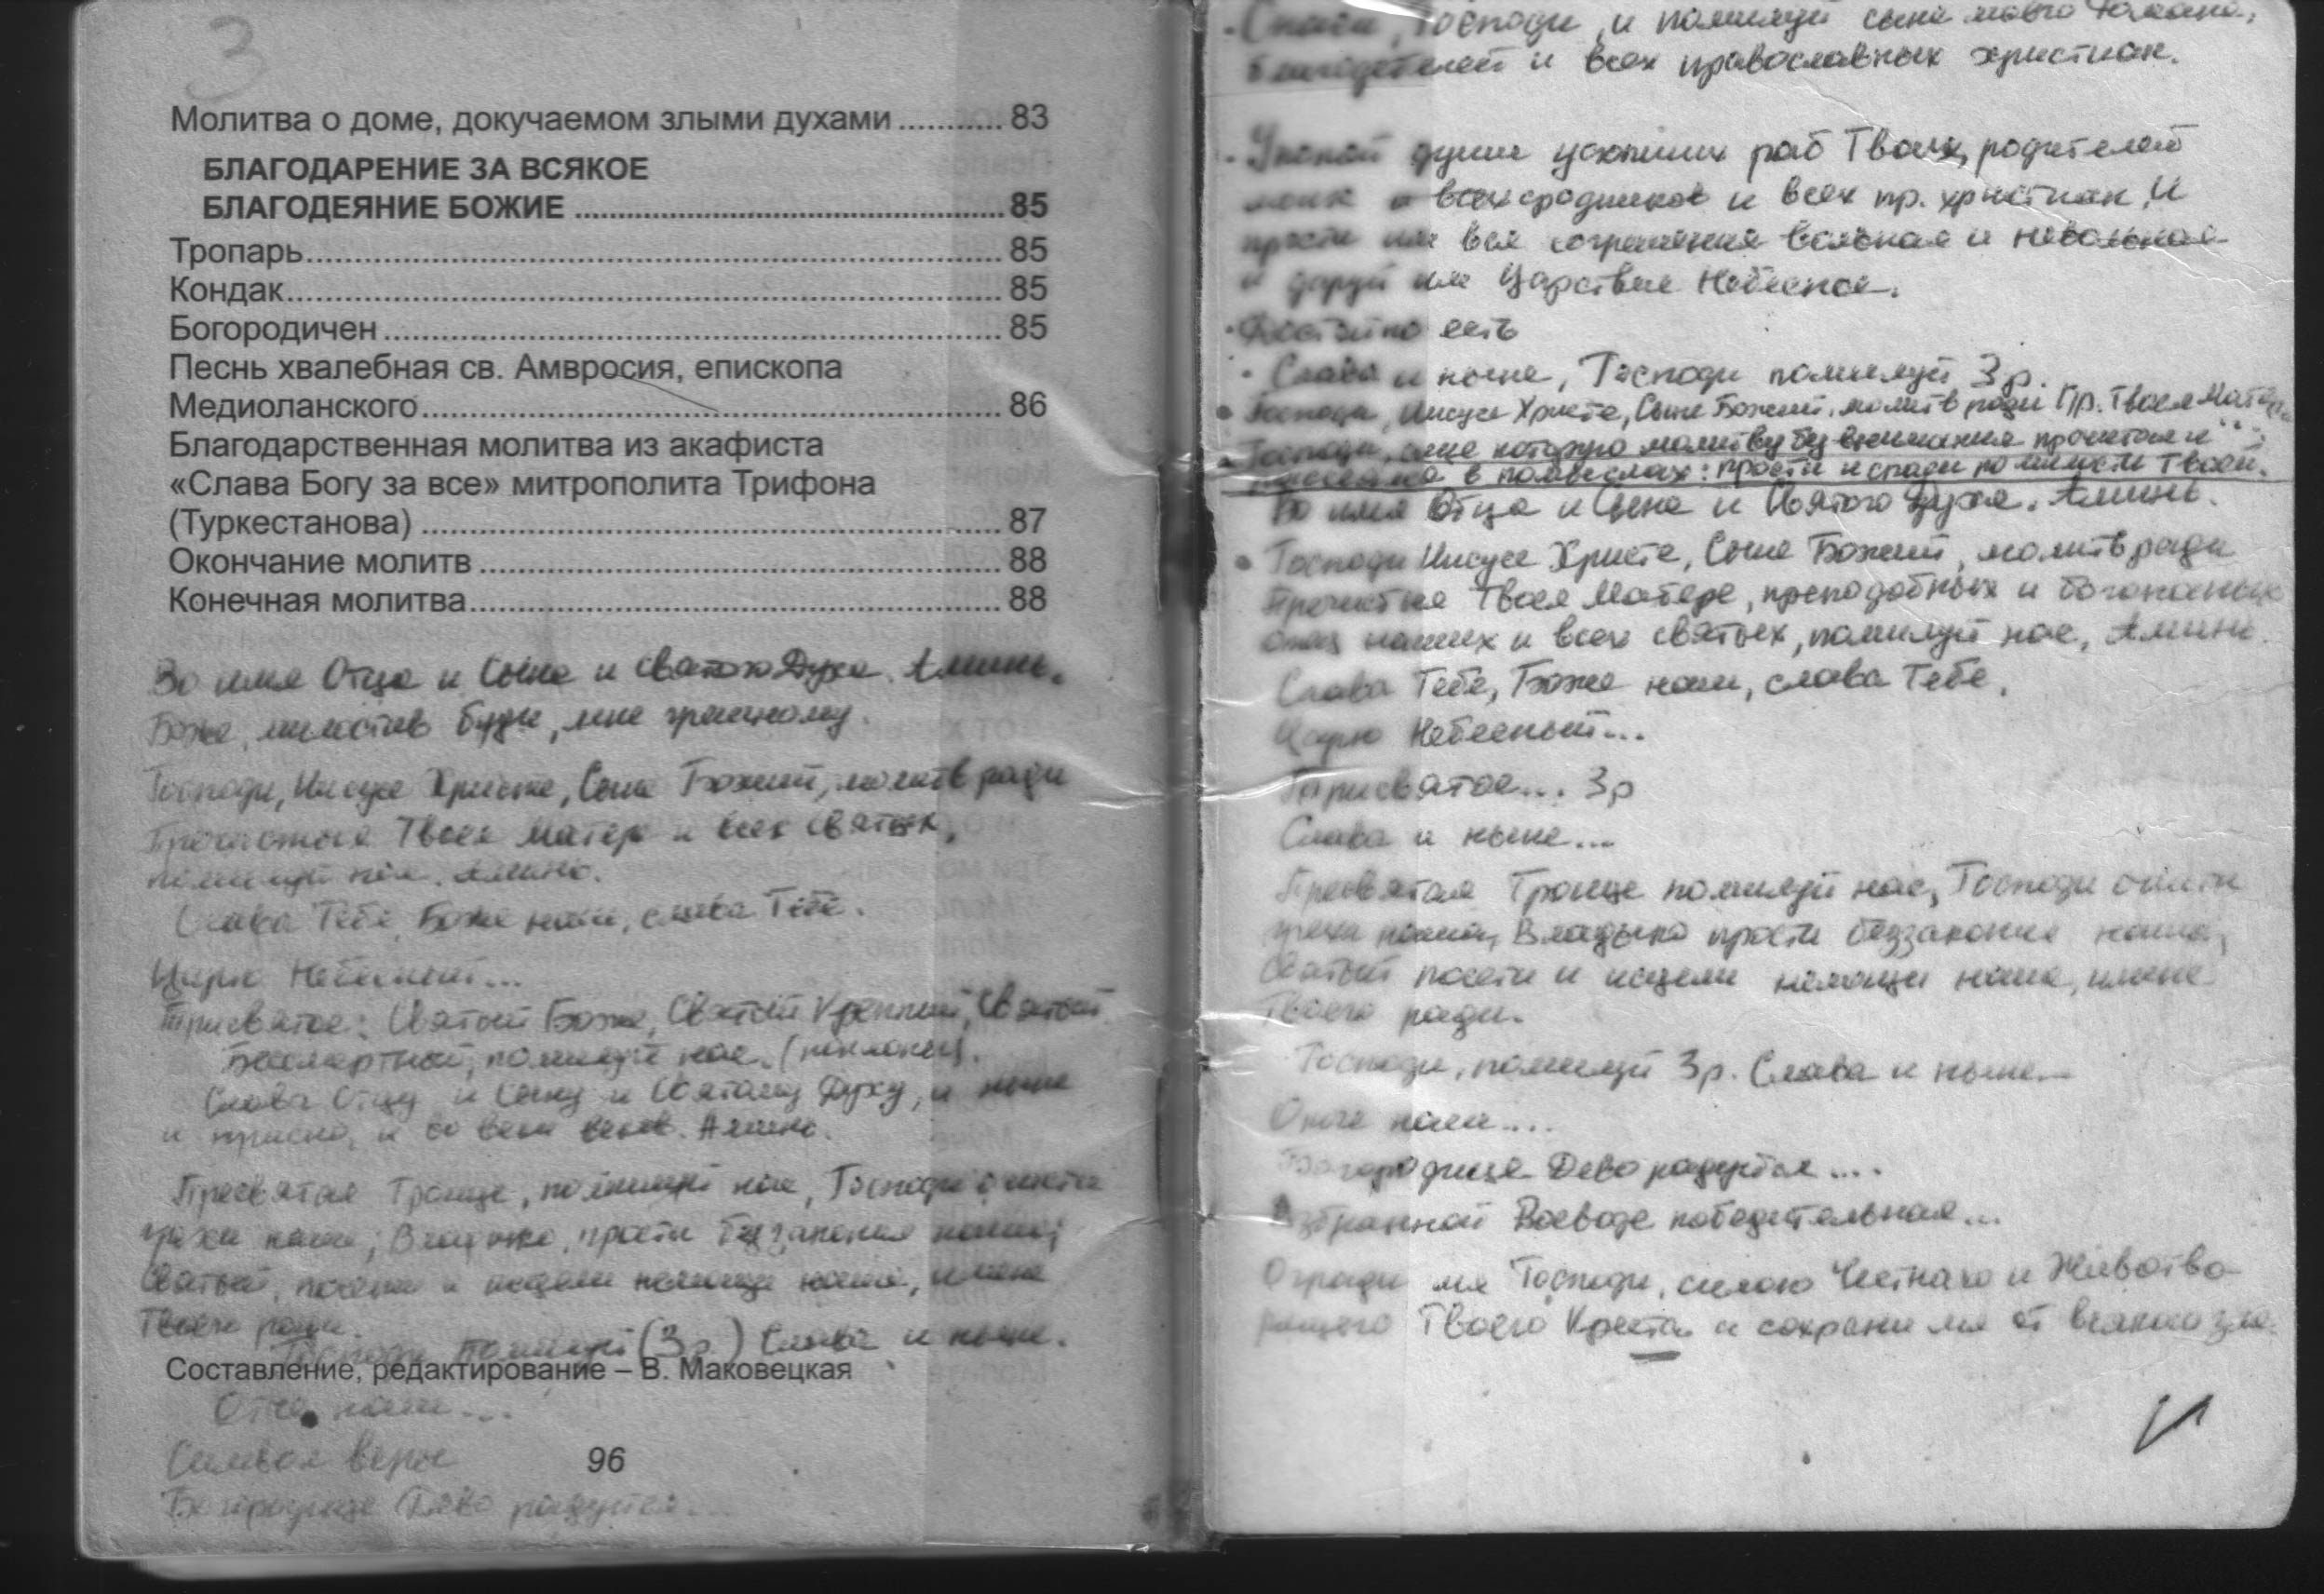 3
Молитва о доме, докучаемом злыми духами ............ 83
БЛАГОДАРЕНИЕ ЗА ВСЯКОЕ
БЛАГОДЕЯНИЕ БОЖИЕ ............ 85
Тропарь ............ 85
Кондак ............ 85
Богородичен ............ 85
Песнь хвалебная св. Амвросия, епископа
Медиоланского ............ 86
Благодарственная молитва из акафиста
«Слава Богу за все» митрополита Трифона
(Туркестанова) ............ 87
Окончание молитв ............ 88
Конечная молитва ............ 88
Во имя Отца и Сына и Святого Духа. Аминь.
Боже, милостив буди, мне грешному.
Господи, Иисусе Христе, Сыне Божий, молитв ради
Пречистыя Твоея Матере и всех святых,
помилуй нас. Аминь.
Слава Тебе, Боже наш, слава Тебе.
Царю Небесный...
Трисвятое: Святый Боже, Святый Крепкий, Святый
Бессмертный, помилуй нас. (поклоны).
Слава Отцу и Сыну и Святому Духу, и ныне
и присно, и во веки веков. Аминь.
Пресвятая Троице, помилуй нас, Господи очисти
грехи наша; Владыко, прости беззакония наша;
Святый, посети и исцели немощи наша, имене
Твоего ради.
Господи помилуй (3р.) Слава и ныне.
Составление, редактирование – В. Маковецкая
Отче наш...
Символ веры
96
Богородице Дево радуйся...
- Спаси, Господи, и помилуй сына моего Романа,
благодетелей и всех православных христиан.
- Упокой души усопших раб Твоих, родителей
моих и всех сродников и всех пр. христиан, и
прости им вся согрешения вольная и невольная
и даруй им Царствие Небесное.
- Достойно есть
- Слава и ныне, Господи помилуй 3р.
• Господи, Иисусе Христе, Сыне Божий, молитв ради Пр. Твоея Матере
• Господи, аще которую молитву без внимания прочитал и
рассеялся в помыслах: прости и спаси по милости Твоей.
Во имя Отца и Сына и Святого Духа. Аминь.
• Господи Иисусе Христе, Сыне Божий, молитв ради
Пречистыя Твоея Матере, преподобных и богоносных
отец наших и всех святых, помилуй нас, Аминь.
Слава Тебе, Боже наш, слава Тебе.
Царю Небесный...
Трисвятое... 3р
Слава и ныне...
Пресвятая Троице помилуй нас, Господи очисти
грехи наша, Владыко прости беззакония наша,
Святый посети и исцели немощи наша, имене
Твоего ради.
Господи, помилуй 3р. Слава и ныне...
Отче наш....
Богородице Дево радуйся....
Взбранной Воеводе победительная...
Огради мя Господи, силою Честнаго и Животво-
рящего Твоего Креста и сохрани мя от всякого зла.